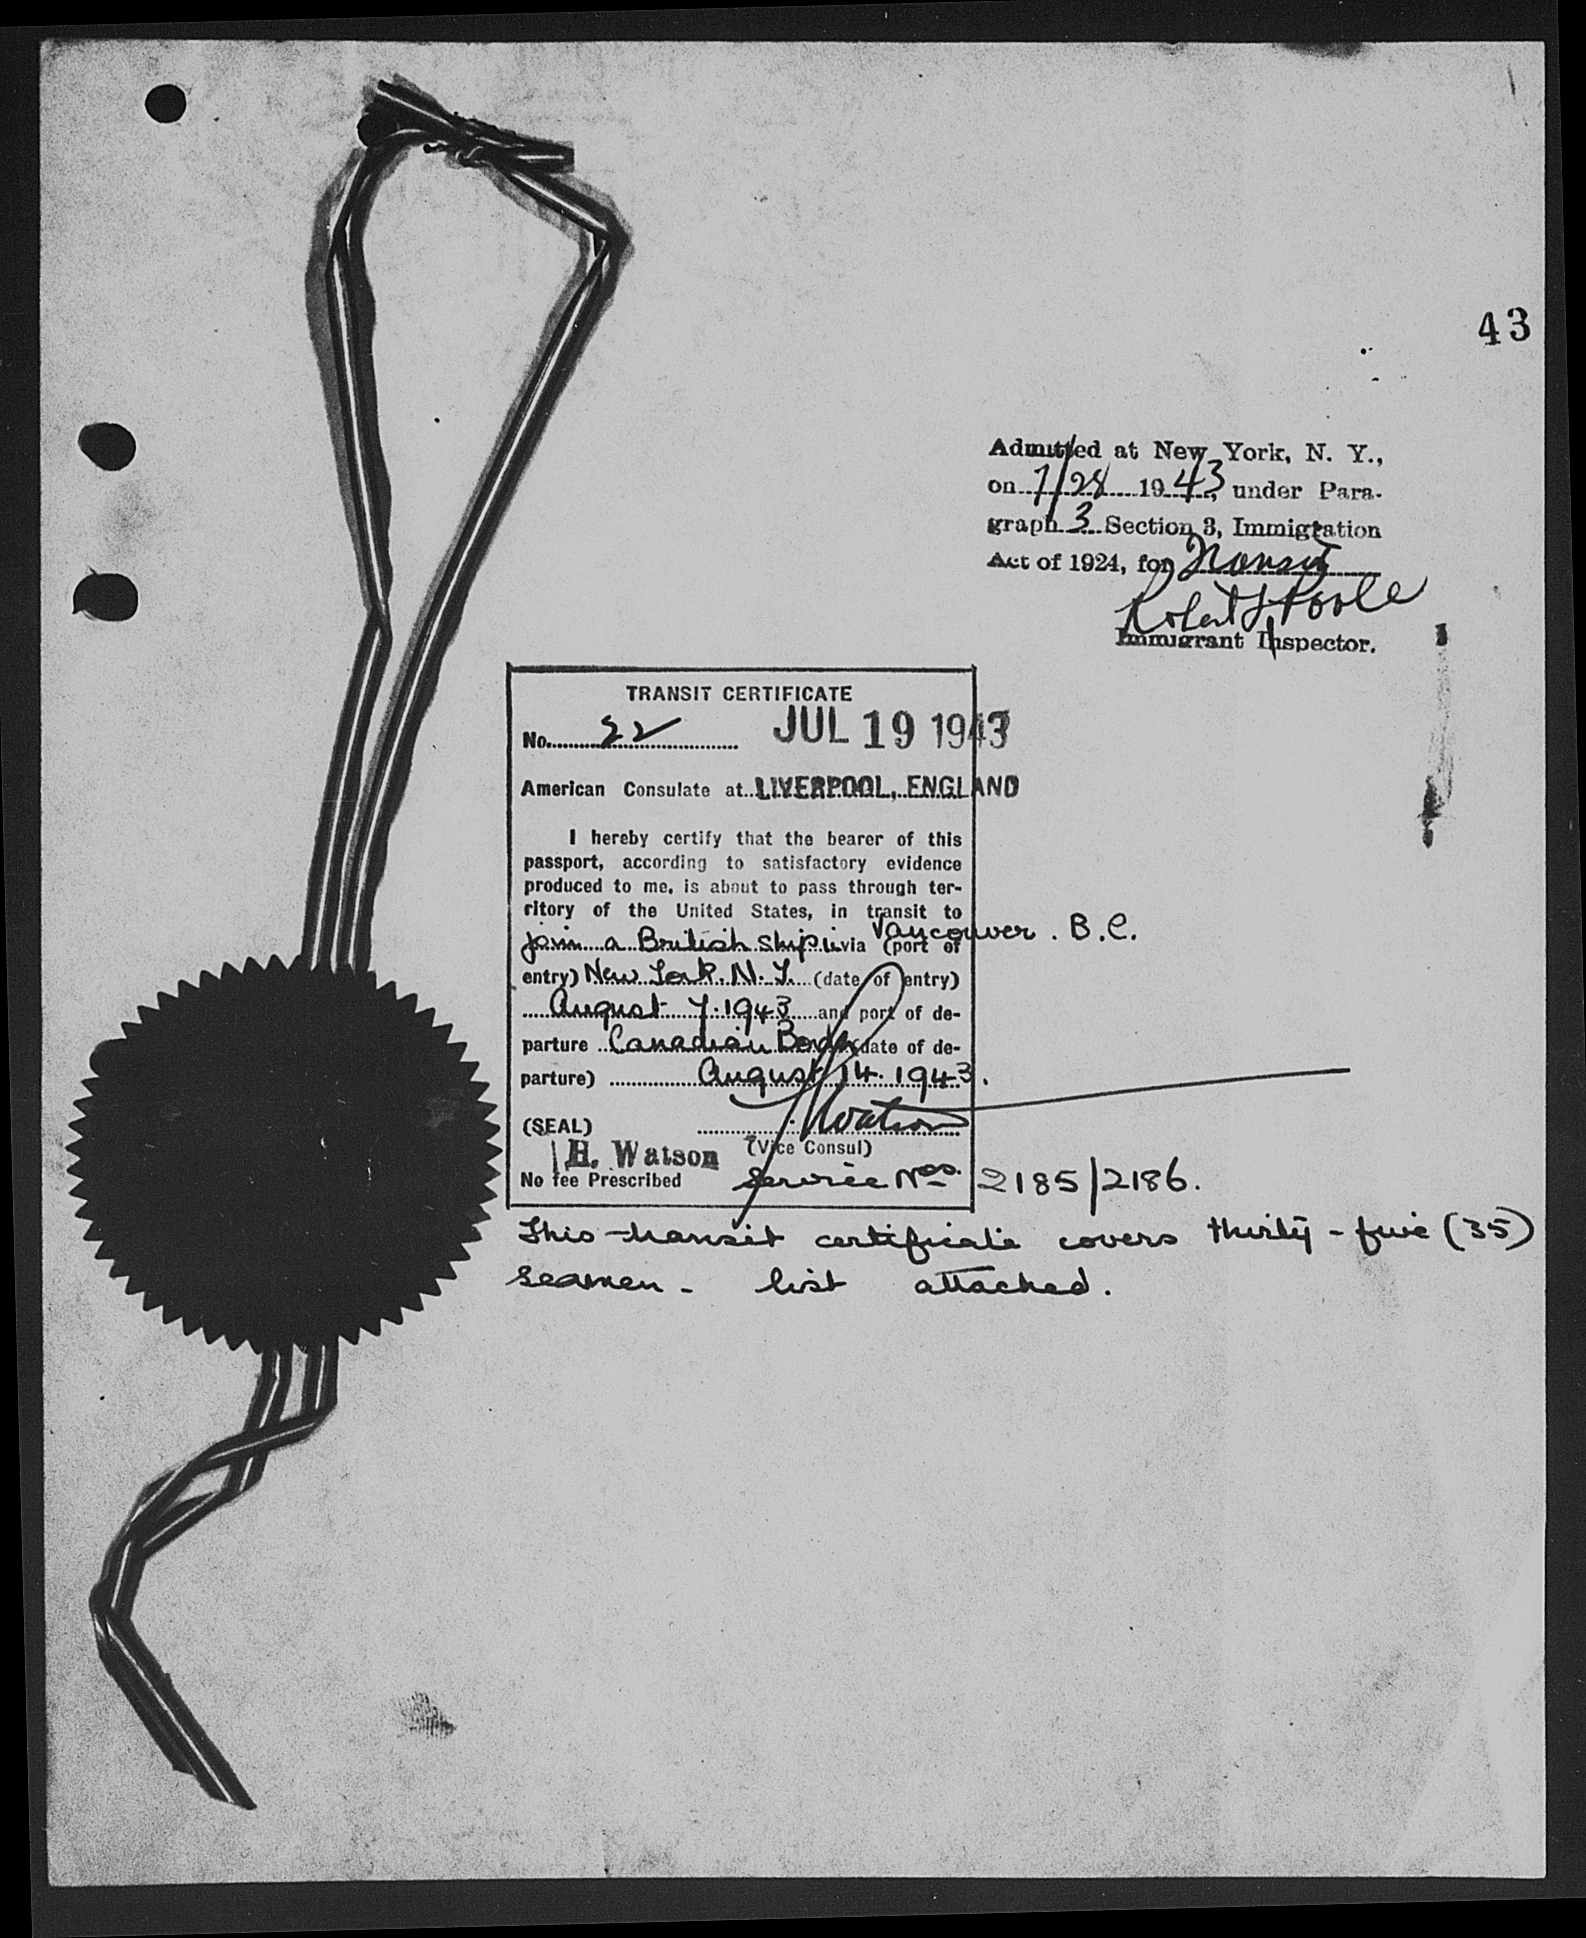 43
Admitted at New York, N. Y.,
on 7/28 1943, under Para-
graph 3 Section 3, Immigration
Act of 1924, for Transit
Robert Poole
Immigrant Inspector.
TRANSIT CERTIFICATE
No. 22 JUL 19 1943
American Consulate at LIVERPOOL, ENGLAND
I hereby certify that the bearer of this
passport, according to satisfactory evidence
produced to me, is about to pass through ter-
ritory of the United States, in transit to
join a British ship in Vancouver. B.C.
via (port of
entry) New York. N.Y. (date of entry)
August 7. 1943 and port of de-
parture Canadian Border (date of de-
parture) August 14. 1943.
(SEAL) Watson
H. Watson (Vice Consul)
No fee Prescribed Service Nos. 2185/2186.
This transit certificate covers thirty-five (35)
seamen - list attached.